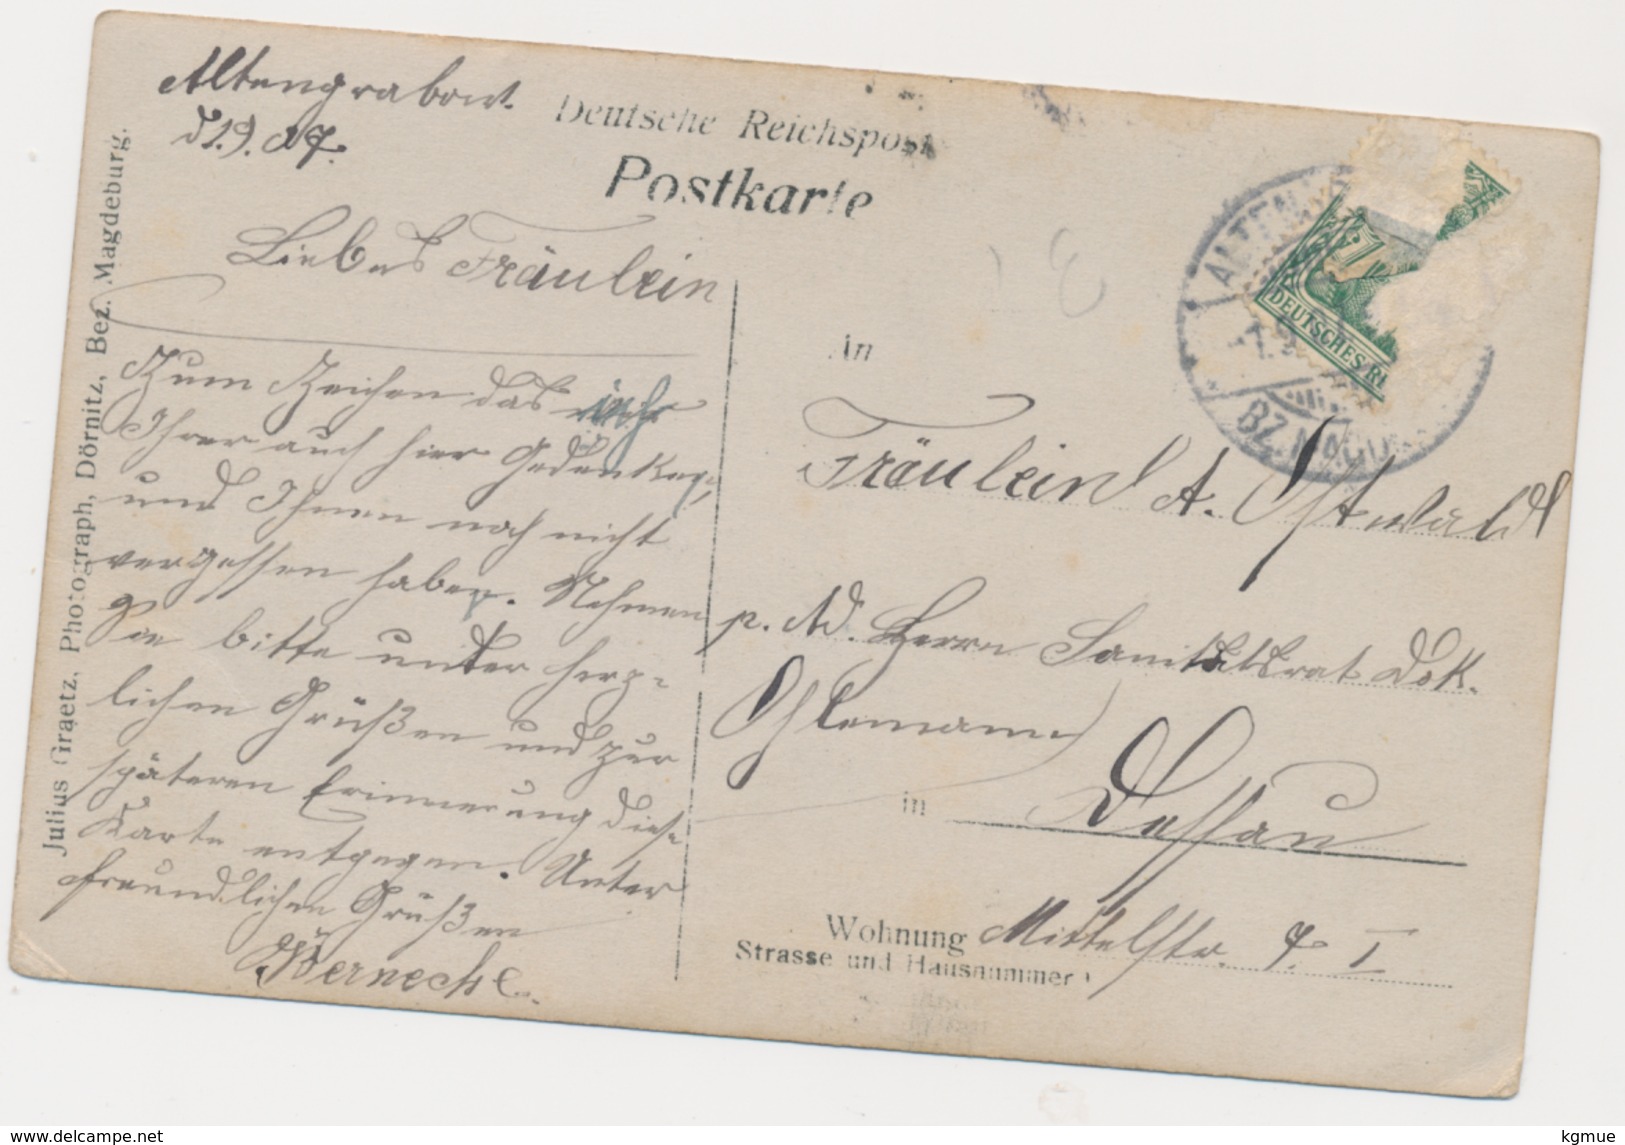 Altengrabow.
d 1.9.07.
Deutsche Reichspost
Postkarte
Liebes Fräulein
Zum Zeichen das
Ihrer auch hier Gedenken,
und Ihnen noch nicht
vergessen haben. Nehmen
Sie bitte unter herz=
lichen Grüßen und zur
späteren Erinnerung diese
Karte entgegen. Unter
freundlichen Grüßen
Wernecke.
An
Fräulein A. Ostwald
p. Ad. Herrn Sanitätsrat Dok.
Ohlemann
in Dessau
Wohnung Mittelstr. 7. I
Strasse und Hausnummer
Julius Graetz, Photograph, Dörnitz, Bez. Magdeburg.
ALTENGR
BZ. MAGD
DEUTSCHES R
delcampe.net
kgmue